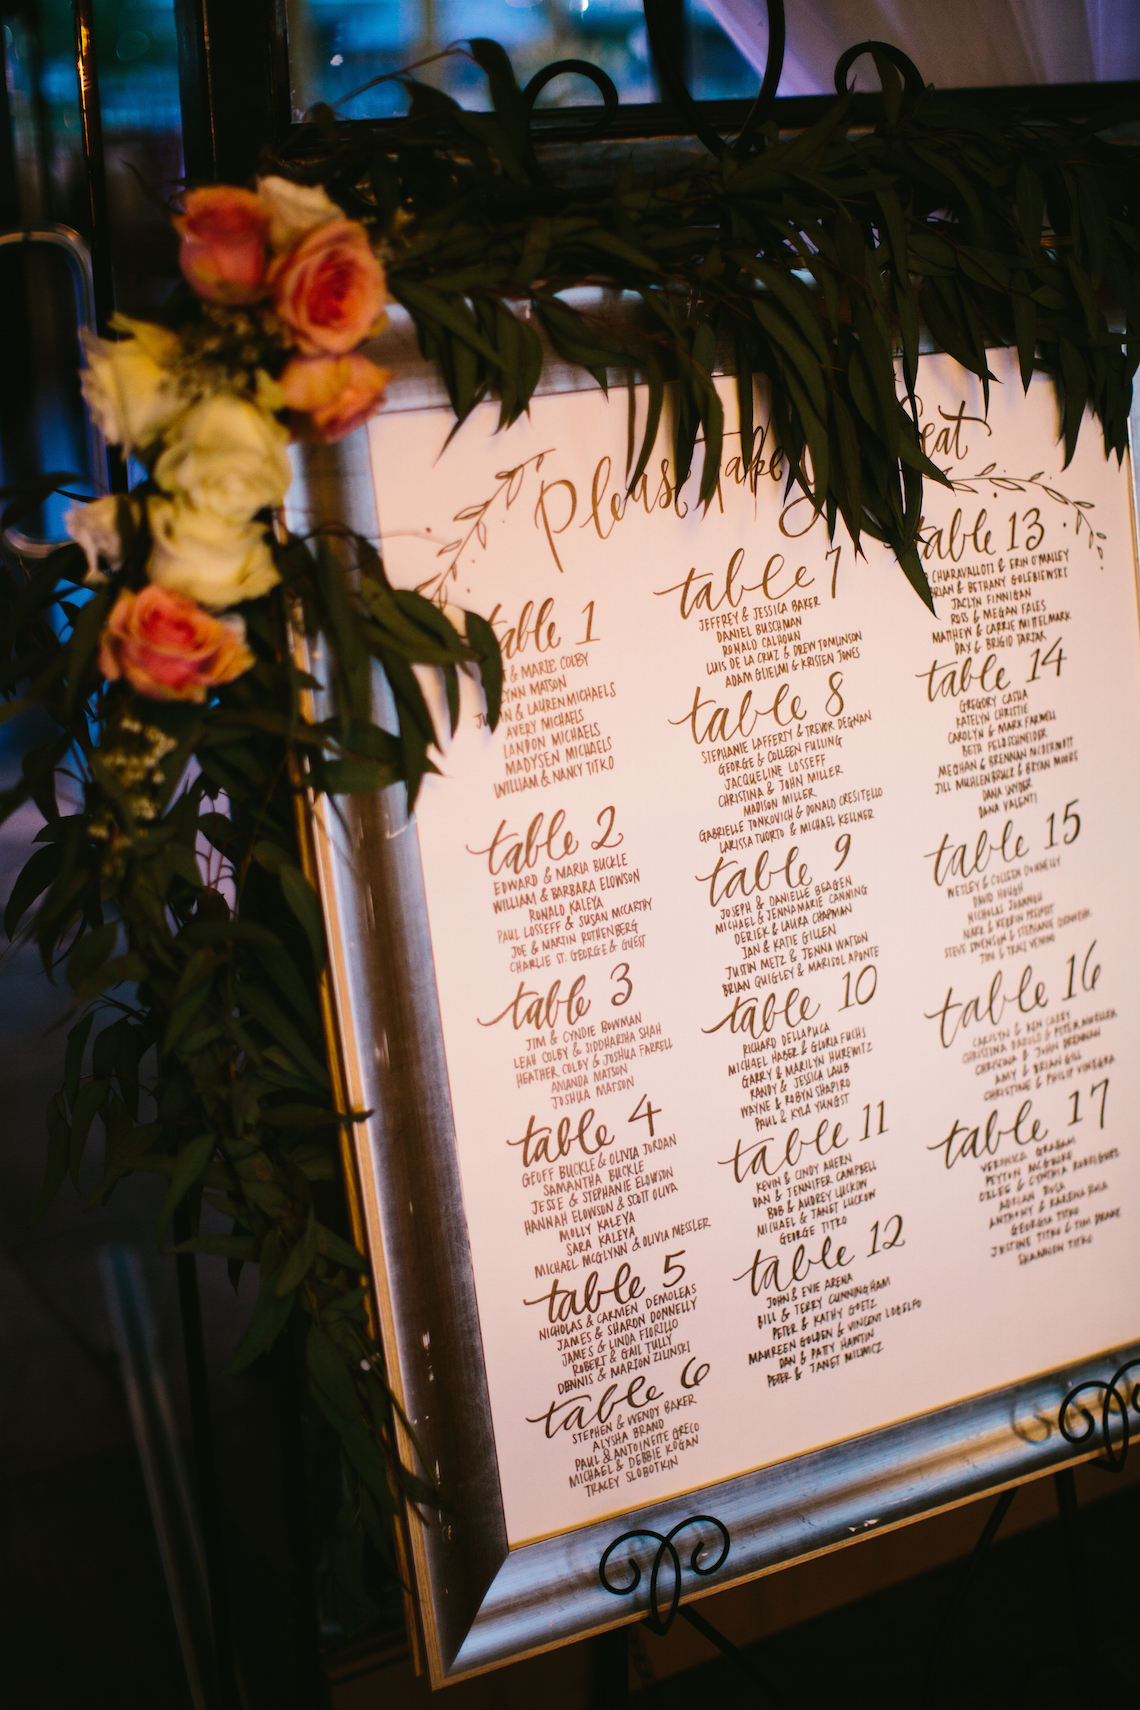 Please take
eat
table 1
& MARIE COLBY
LYNN MATSON
& LAUREN MICHAELS
AVERY MICHAELS
LANDON MICHAELS
MADYSEN MICHAELS
WILLIAM & NANCY TITKO
table 2
EDWARD & MARIA BUCKLE
WILLIAM & BARBARA ELOWSON
RONALD KALEYA
PAUL LOSSEFF & SUSAN MCCARTHY
JOE & MARTIN RUTHENBERG
CHARLIE ST. GEORGE & GUEST
table 3
JIM & CYNDIE BOWMAN
LEAH COLBY & SIDDHARTHA SHAH
HEATHER COLBY & JOSHUA FARRELL
AMANDA MATSON
JOSHUA MATSON
table 4
GEOFF BUCKLE & OLIVIA JORDAN
SAMANTHA BUCKLE
JESSE & STEPHANIE ELOWSON
HANNAH ELOWSON & SCOTT OLIVA
MOLLY KALEYA
SARA KALEYA
MICHAEL MCGLYNN & OLIVIA MESSLER
table 5
NICHOLAS & CARMEN DEMOLEAS
JAMES & SHARON DONNELLY
JAMES & LINDA FIORILLO
ROBERT & GAIL TULLY
DENNIS & MARION ZILINSKI
table 6
STEPHEN & WENDY BAKER
ALYSHA BRAND
PAUL & ANTOINETTE GRECO
MICHAEL & DEBBIE KOGAN
TRACEY SLOBOTKIN
table 7
JEFFREY & JESSICA BAKER
DANIEL BUSCHMAN
RONALD CALHOUN
LUIS DE LA CRUZ & DREW TOMLINSON
ADAM GLIELMI & KRISTEN JONES
table 8
STEPHANIE LAFFERTY & TREVOR DEGNAN
GEORGE & COLLEEN FULLING
JACQUELINE LOSSEFF
CHRISTINA & JOHN MILLER
MADISON MILLER
GABRIELLE TONKOVICH & DONALD CRESITELLO
LARISSA TUORTO & MICHAEL KELLNER
table 9
JOSEPH & DANIELLE BEAGEN
MICHAEL & JENNAMARIE CANNING
DERIEK & LAURA CHAPMAN
IAN & KATIE GILLEN
JUSTIN METZ & JENNA WATON
BRIAN QUIGLEY & MARISOL APONTE
table 10
RICHARD DELLAPUCA
MICHAEL HABER & GLORIA FUCHS
GARRY & MARILYN HUREWITZ
RANDY & JESSICA LAUB
WAYNE & ROBYN SHAPIRO
PAUL & KYLA YUNGST
table 11
KEVIN & CINDY AHERN
DAN & JENNIFER CAMPBELL
BOB & AUDREY LUCKOW
MICHAEL & JANET LUCKOW
GEORGE TITKO
table 12
JOHN & EVIE ARENA
BILL & TERRY CUNNINGHAM
PETER & KATHY GOETZ
MAUREEN GOLDEN & VINCENT LOBELFO
DAN & PATTY HAWTIN
PETER & JANET MILWICZ
table 13
CHIARAVALLOTI & ERIN O'MALLEY
BRIAN & BETHANY GOLEBIEWSKI
JACLYN FINNIGAN
ROSS & MEGAN FALES
MATTHEW & CARRIE MITTELMARK
DAX & BRIGID TARZAK
table 14
GREGORY CASHA
KATELYN CHRISTIE
CAROLYN & MARK FARWELL
BETH FELDSCHNEIDER
MEGHAN & BRENNAN MCDERMOTT
JILL MUHLENBRUCK & BRYAN MOORE
DANA SNYDER
DANA VALENTI
table 15
WESLEY & COLLEEN DONNELLY
DAVID HOUGH
NICHOLAS
STEVE SWENSON & STEPHANIE
TOM & TRACI VENINO
table 16
CAROLYN & KEN CAREY
CHRISTINA
CHRISTINA & JOHN BRENNAN
AMY & BRIAN GILL
CHRISTINE & PHILIP VINEGRA
table 17
VERONICA GRAHAM
PEYTON MCGUIRE
& CYNTHIA RODRIGUES
ADRIAN ROSA
ANTHONY & KARENA ROSA
GEORGIA TITKO
JUSTINE TITKO & TIM DRAKE
SHANNON TITKO